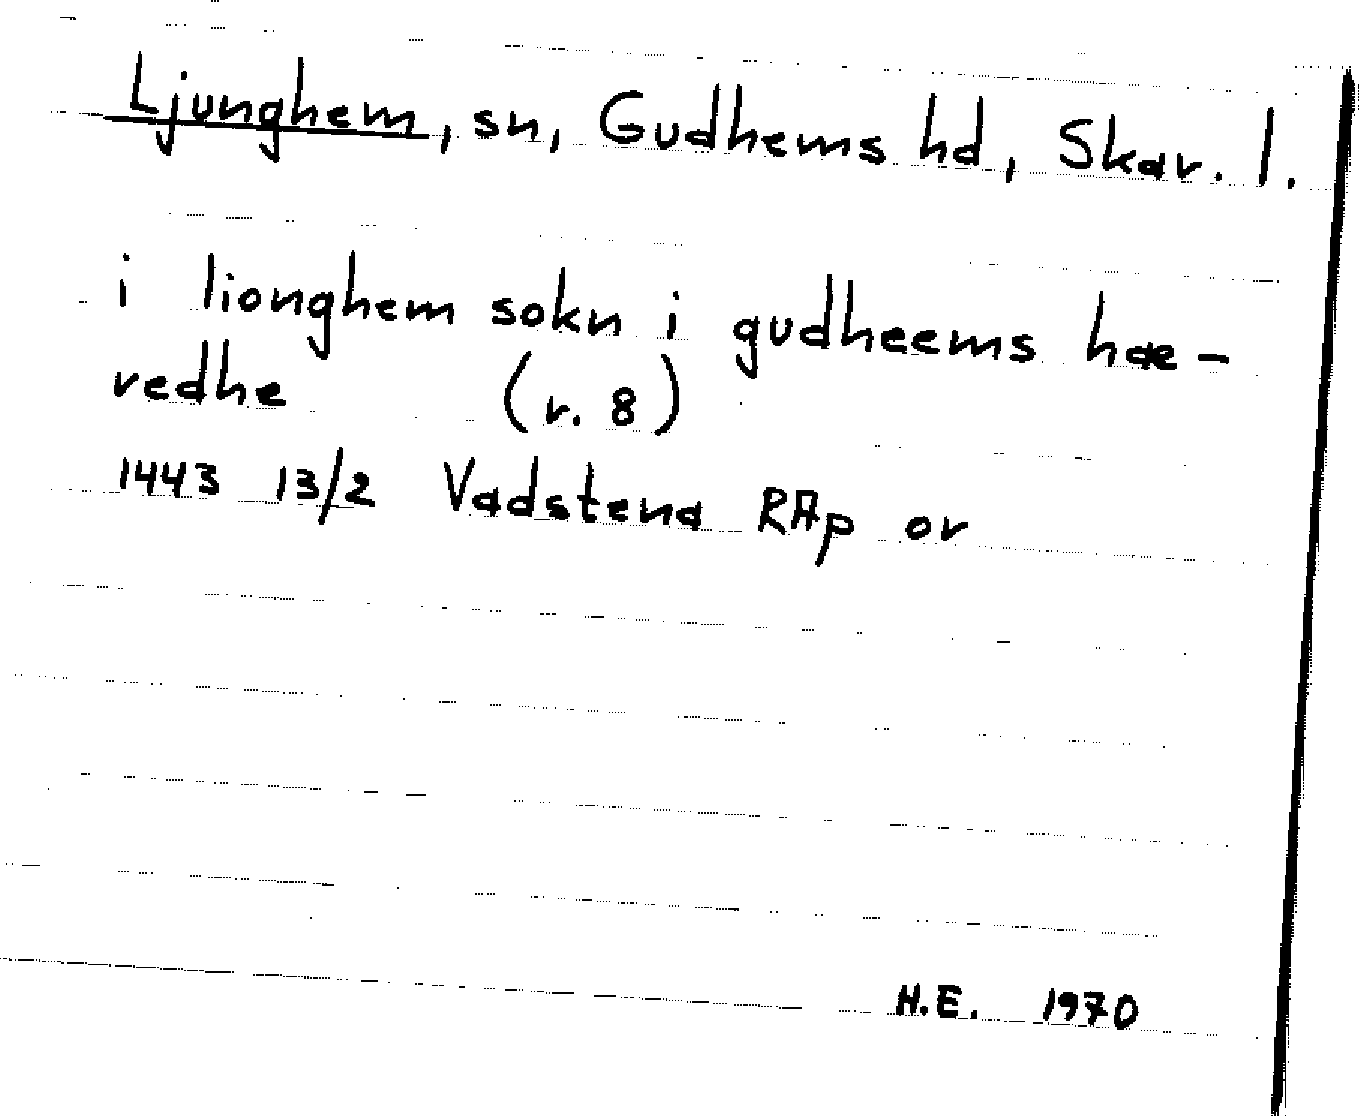 Ljunghem, sn, Gudhems hd, Skar. l.
i lionghem sokn i gudheems hæ-
redhe (r. 8)
1443 13/2 Vadstena RAp or
H.E. 1970